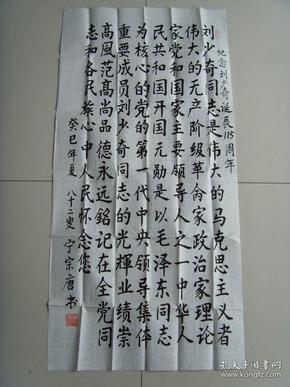 纪念刘少奇诞辰115周年
刘少奇同志是伟大的马克思主义者
伟大的无产阶级革命家政治家理论
家党和国家主要领导人之一中华人
民共和国开国元勋是以毛泽东同志
为核心的党的第一代中央领导集体
重要成员刘少奇同志的光輝业绩崇
高風范高尚品德永远銘记在全党同
志和各民族心中人民怀念您
癸巳年夏 八十二叟 宁宗唐书
孔夫子旧书网